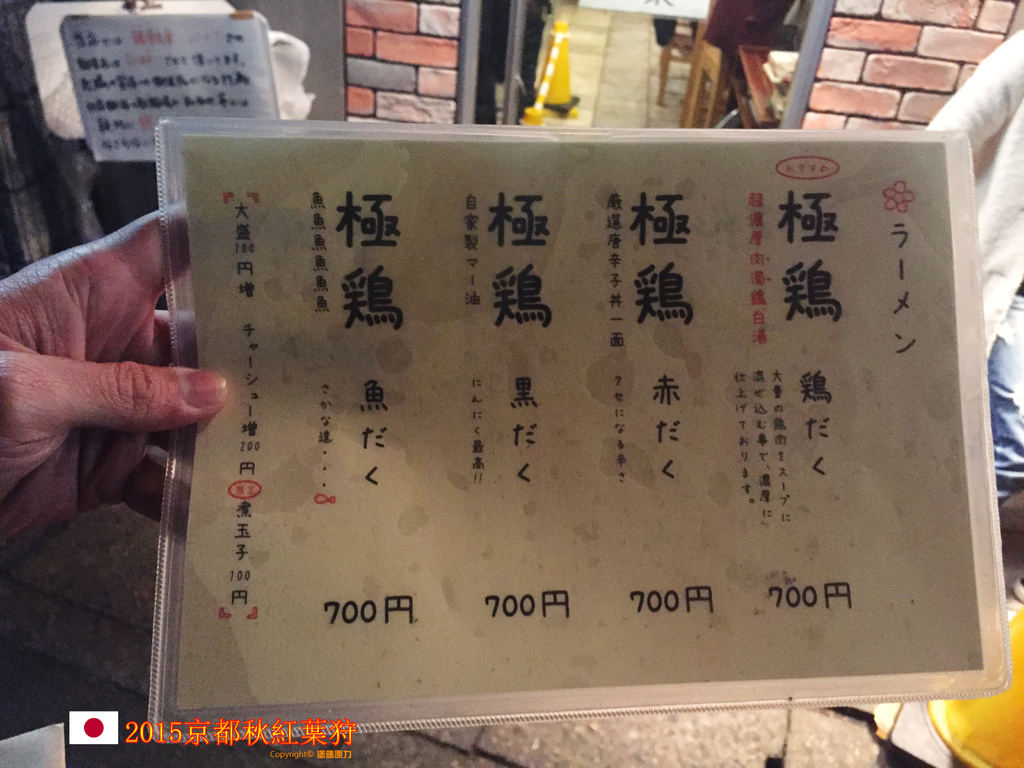 ラーメン
おすすめ
極鶏 鶏だく
超濃厚肉濁鶏白湯
大量の鶏肉をスープに
混ぜ込む事で、濃厚に
仕上げております。
700円
極鶏 赤だく
厳選唐辛子丼一面
クセになる辛さ
700円
極鶏 黒だく
自家製マー油
にんにく最高!!
700円
極鶏 魚だく
魚魚魚魚魚魚
さかな達・・・
700円
大盛100円増 チャーシュー増200円 煮玉子100円
2015京都秋紅葉狩
Copyright©